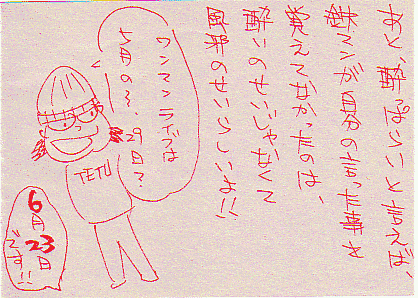 あと、酔っぱらいと言えば、
鉄マンが自分の言った事を
覚えてなかったのは、
酔いのせいじゃなくて
風邪のせいらしいよ!!
ワンマンライブは
七月の〜、29日?
TETU
6月
23日
です!!